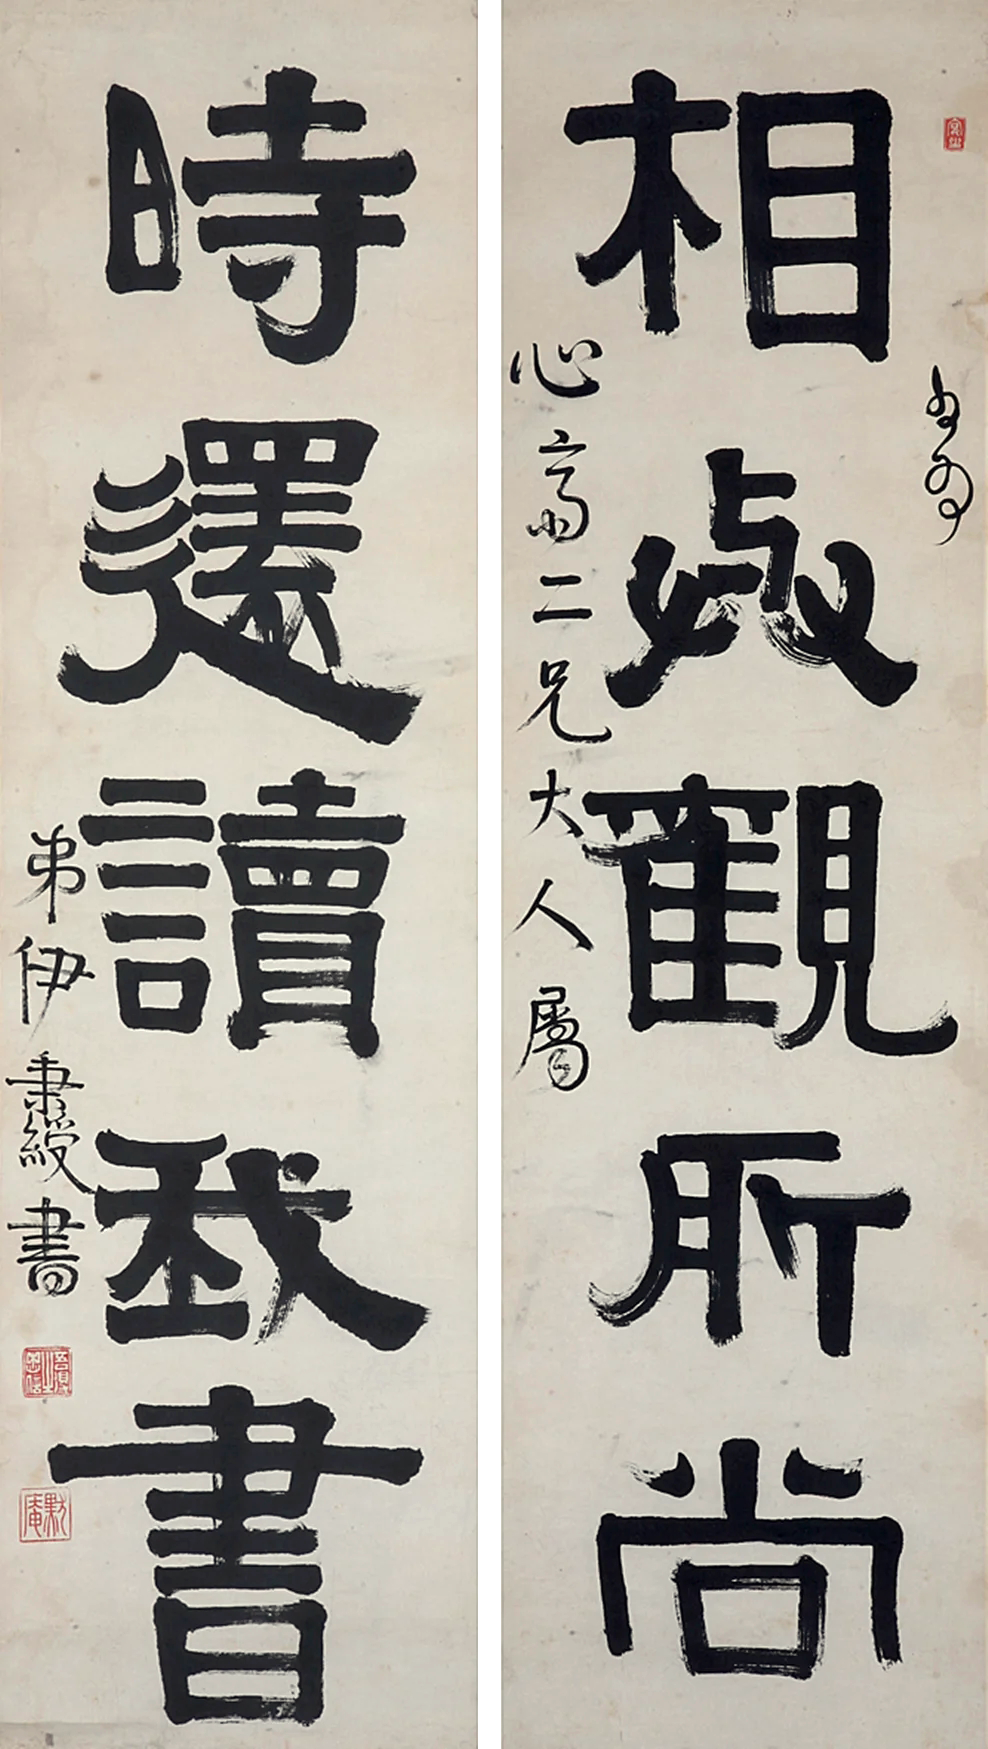 相與觀所尚
為
心齋二兄大人屬
時還讀我書
弟伊秉綬書
默庵